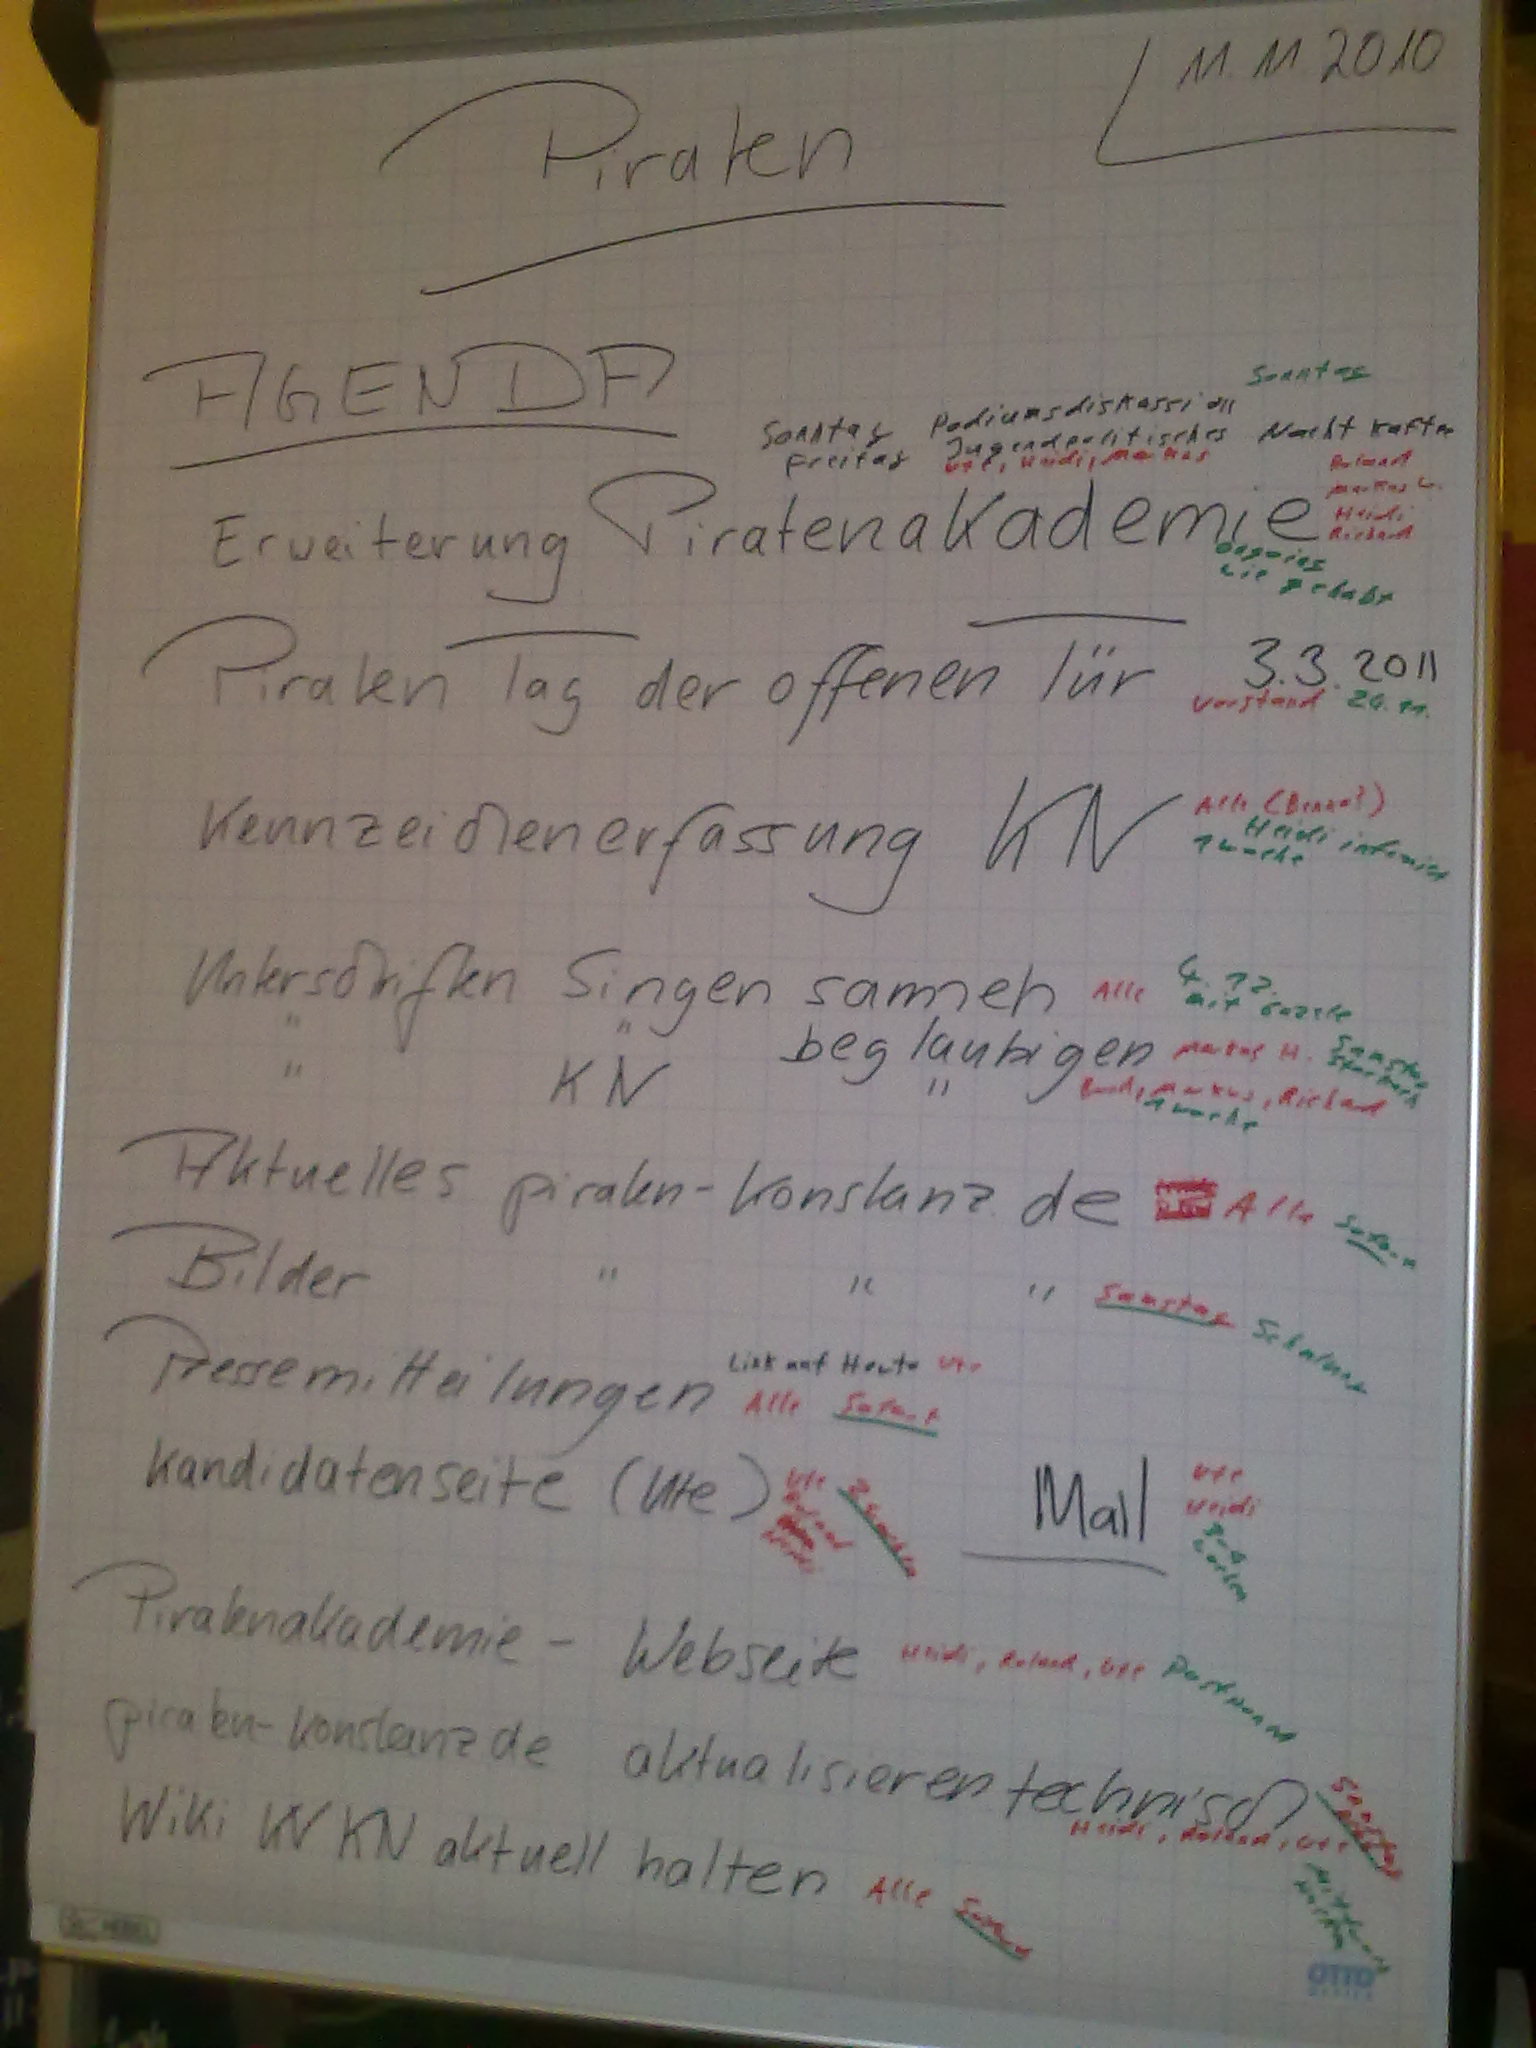 11.11.2010
Piraten
AGENDA
Sonntag
Sonntag Podiumsdiskussion
Freitag Jugendpolitisches Nacht
Ute, Heidi, Markus
Roland
Markus
Heidi
Richard
Erweiterung Piratenakademie
wie gehabt
Piraten Tag der offenen Tür 3.3.2011
Vorstand
Kennzeichenerfassung KN Alle
Heidi informiert
1 Woche
Unterschriften Singen sammeln Alle 4.12.
mit
" " beglaubigen Markus H. Samstag
" KN " Markus, Richard
1 Woche
Aktuelles piraten-konstanz.de Alle Sofort
Bilder " " " Samstag
Pressemitteilungen Link auf Heute Ute
Alle Sofort
Kandidatenseite (Ute) Ute
Roland
2 Wochen
Mail Ute
Heidi
3-4
Wochen
Piratenakademie - Webseite Heidi, Roland, Ute
piraten-konstanz.de aktualisieren technisch
Heidi, Roland, Ute
Wiki KV KN aktuell halten Alle Sofort
OTTO